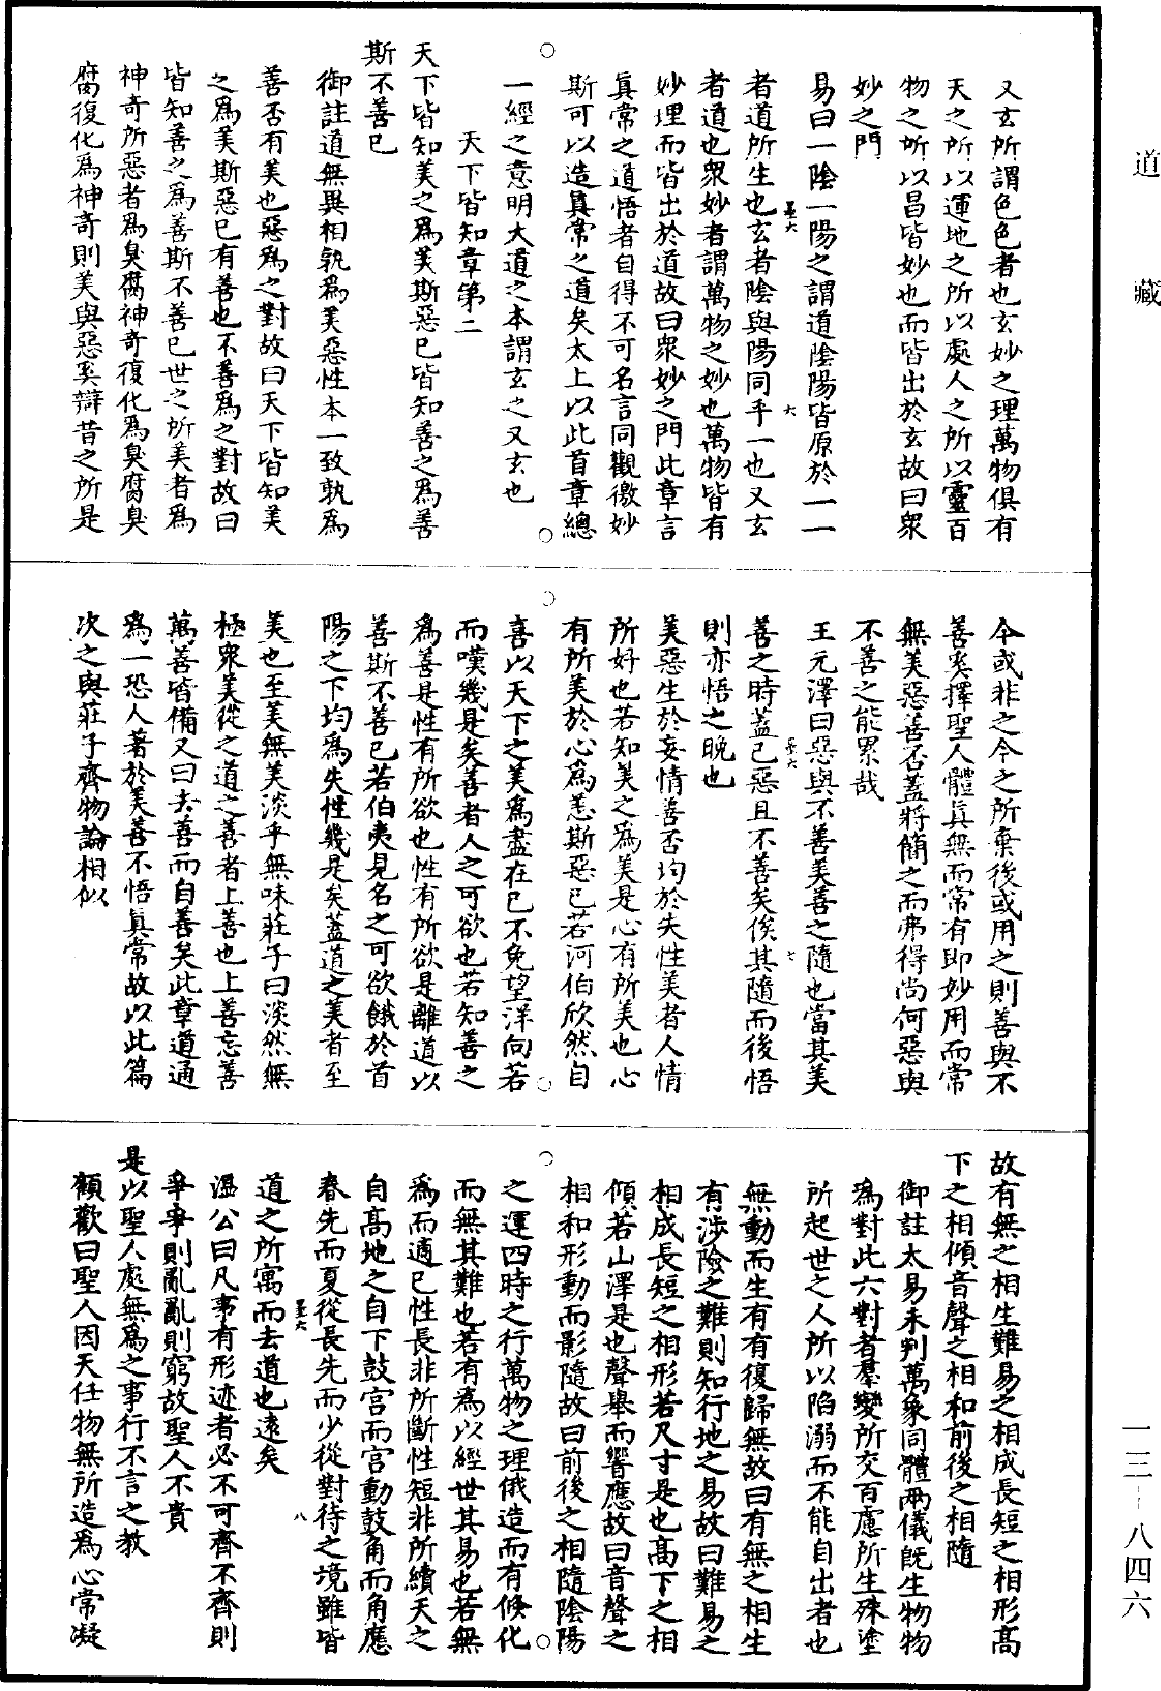 道藏
又玄所謂色色者也玄妙之理萬物俱有
天之所以運地之所以處人之所以靈百
物之所以昌皆妙也而皆出於玄故曰衆
妙之門
易曰一陰一陽之謂道陰陽皆原於一一
者道所生也玄者陰與陽同乎一也又玄
者道也衆妙者謂萬物之妙也萬物皆有
妙理而皆出於道故曰衆妙之門此章言
眞常之道悟者自得不可名言同觀徼妙
斯可以造眞常之道矣太上以此首章總
一經之意明大道之本謂玄之又玄也
天下皆知章第二
天下皆知美之爲美斯惡已皆知善之爲善
斯不善已
御註道無異相孰爲美惡性本一致孰爲
善否有美也惡爲之對故曰天下皆知美
之爲美斯惡已有善也不善爲之對故曰
皆知善之爲善斯不善已世之所美者爲
神奇所惡者爲臭腐神奇復化爲臭腐臭
腐復化爲神奇則美與惡奚辯昔之所是
今或非之今之所棄後或用之則善與不
善奚擇聖人體眞無而常有即妙用而常
無美惡善否蓋將簡之而弗得尚何惡與
不善之能累哉
王元澤曰惡與不善美善之隨也當其美
善之時蓋已惡且不善矣俟其隨而後悟
則亦悟之晚也
美惡生於妄情善否均於失性美者人情
所好也若知美之爲美是心有所美也心
有所美於心爲恙斯惡已若河伯欣然自
喜以天下之美爲盡在已不免望洋向若
而嘆幾是矣善者人之可欲也若知善之
爲善是性有所欲也性有所欲是離道以
善斯不善已若伯夷見名之可欲餓於首
陽之下均爲失性幾是矣蓋道之美者至
美也至美無美淡乎無味莊子曰淡然無
極衆美從之道之善者上善也上善忘善
萬善皆備又曰去善而自善矣此章道通
爲一恐人著於美善不悟眞常故以此篇
次之與莊子齊物論相似
故有無之相生難易之相成長短之相形高
下之相傾音聲之相和前後之相隨
御註太易未判萬象同體兩儀既生物物
爲對此六對者羣變所交百慮所生殊塗
所起世之人所以陷溺而不能自出者也
無動而生有有復歸無故曰有無之相生
有涉險之難則知行地之易故曰難易之
相成長短之相形若尺寸是也高下之相
傾若山澤是也聲舉而響應故曰音聲之
相和形動而影隨故曰前後之相隨陰陽
之運四時之行萬物之理俄造而有倏化
而無其難也若有爲以經世其易也若無
爲而適已性長非所斷性短非所續天之
自高地之自下鼓宮而宮動鼓角而角應
春先而夏從長先而少從對待之境雖皆
道之所寓而去道也遠矣
溫公曰凡事有形迹者必不可齊不齊則
爭爭則亂亂則窮故聖人不貴
是以聖人處無爲之事行不言之教
顧歡曰聖人因天任物無所造爲心常凝
一三-八四六